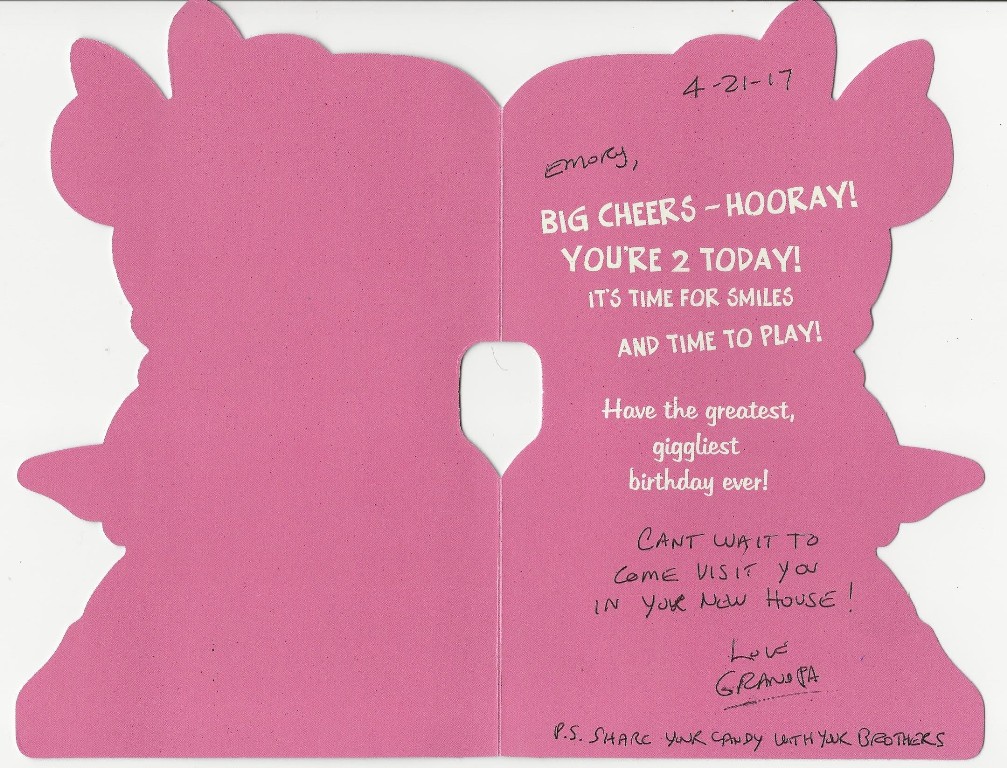 4-21-17
Emory,
BIG CHEERS – HOORAY!
YOU'RE 2 TODAY!
IT'S TIME FOR SMILES
AND TIME TO PLAY!
Have the greatest,
giggliest
birthday ever!
CANT WAIT TO
COME VISIT YOU
IN YOUR NEW HOUSE!
LOVE
GRANDPA
P.S. SHARE YOUR CANDY WITH YOUR BROTHERS